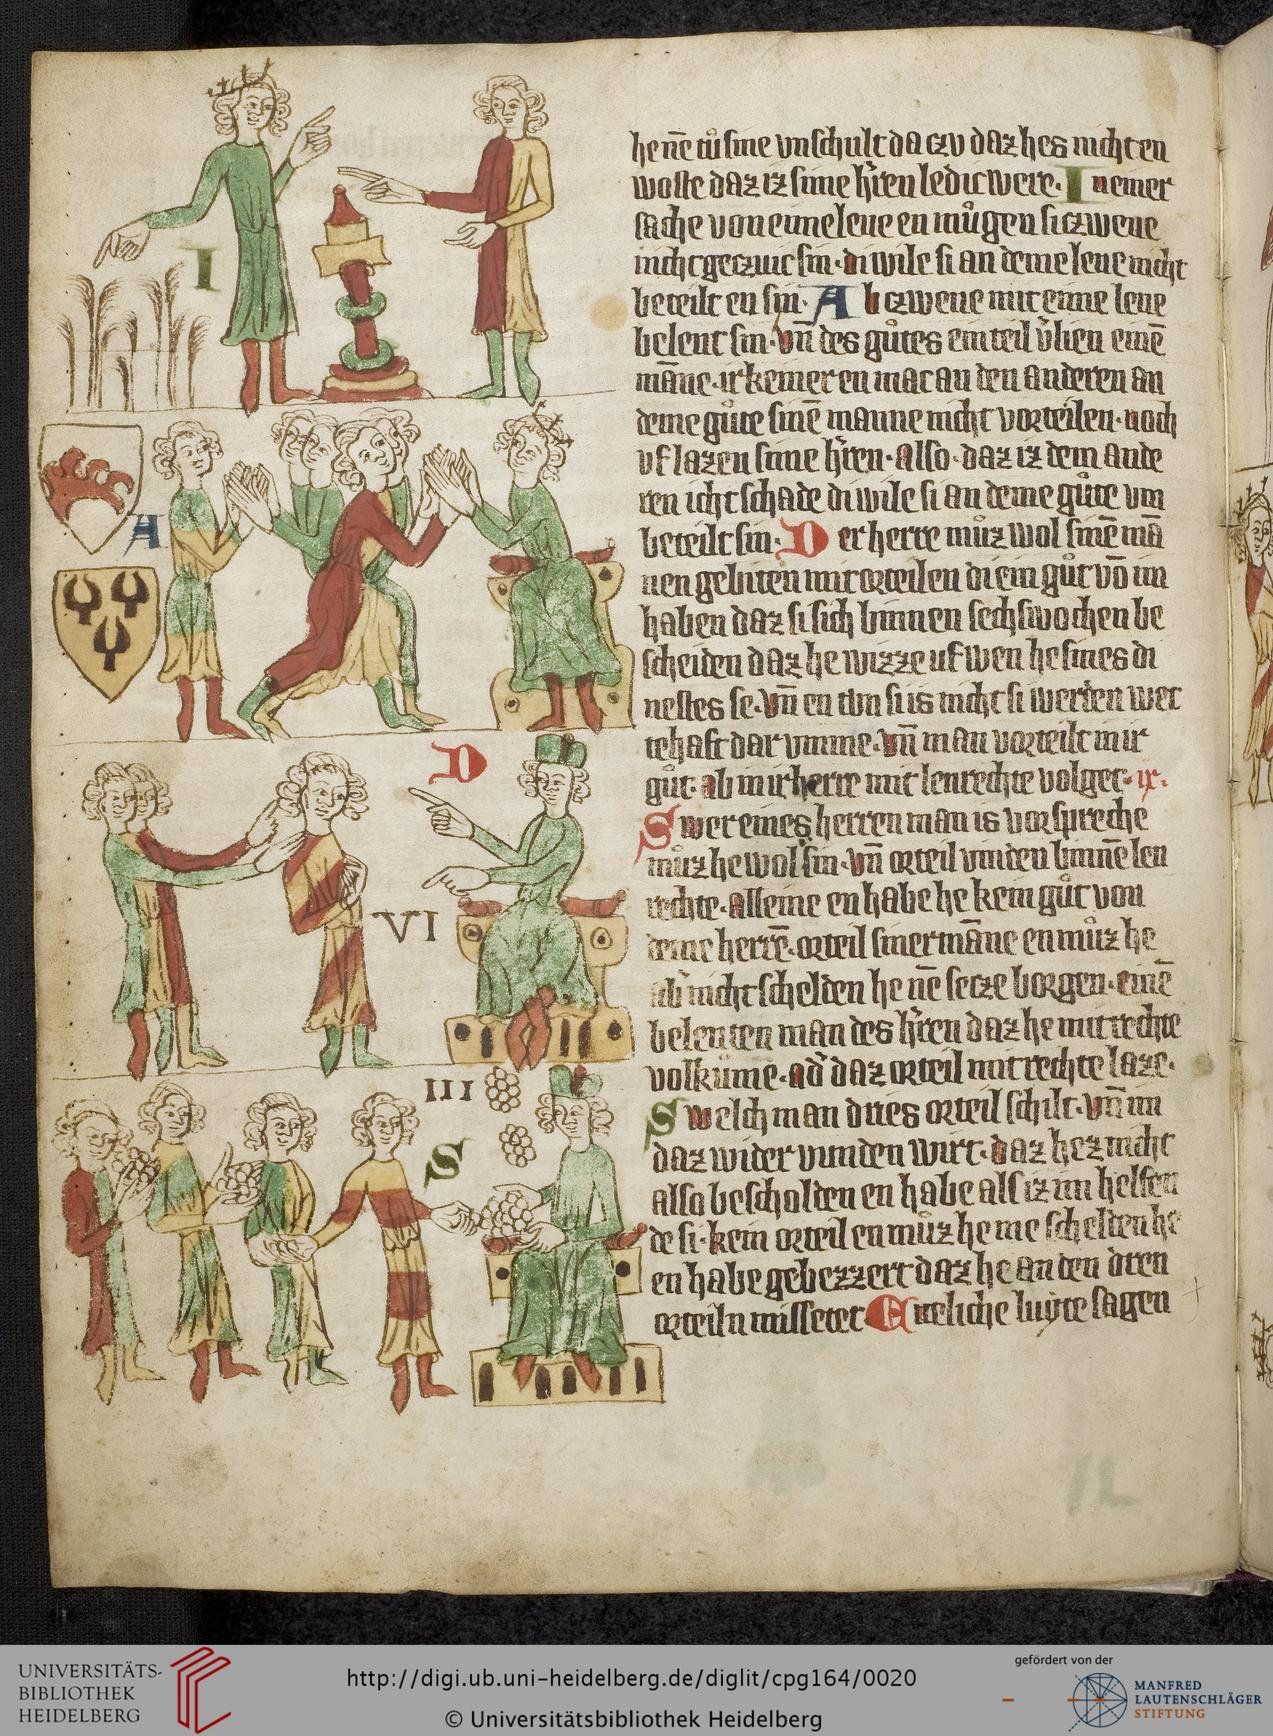 I
A
D
VI
III
S
he nē tů sine vnschult da czv daz hes nicht en
wolte daz iz sime h'ren ledic were. In einer
sache von eime lene en můgen si czwene
nicht geczuic sin. di wile si an deme lene nicht
beteilt en sin. Ab czwene mit eime lene
belent sin. vn̄ des gůtes ein teil v'lien einē
māne. ir keiner en mac an den anderen an
deme gůte sinē manne nicht vorteilen. noch
vf lazen sime h'ren. also. daz iz dem ande
ren icht schade di wile si an deme gůte vm
beteilt sin. Der herre můz wol sinē mā
nen gebiten mit orteilen di ein gůt vō im
haben daz si sich binnen sechs wochen be
scheiden daz he wizze uf wen he sines di
nestes se. vn̄ en tvn si is nicht si werden wet
tehaft dar vmme. vn̄ man vorteilt in ir
gůt. ab in ir herre mit lenrechte volget. ix.
Swer eines herren man is vorspreche
můz he wol sin. vn̄ orteil vinden binnē len
rechte. alleine en habe he kein gůt von
deme herrē. orteil siner māne en můz he
ab' nicht schelden he nē secze borgen. einē
belenten man des h'ren daz he mit rechte
volkůme. ad' daz orteil mit rechte laze.
Swelch man dries orteil schilt. vn̄ im
daz wider vunden wirt. daz hez nicht
also bescholden en habe als iz im helfen
de si. kein orteil en můz he me schelden he
en habe gebezzert daz he an den dren
orteiln missetet. Etteliche luyte sagen
12
UNIVERSITÄTS-
BIBLIOTHEK
HEIDELBERG
http://digi.ub.uni-heidelberg.de/diglit/cpg164/0020
© Universitätsbibliothek Heidelberg
gefördert von der
MANFRED
LAUTENSCHLÄGER
STIFTUNG